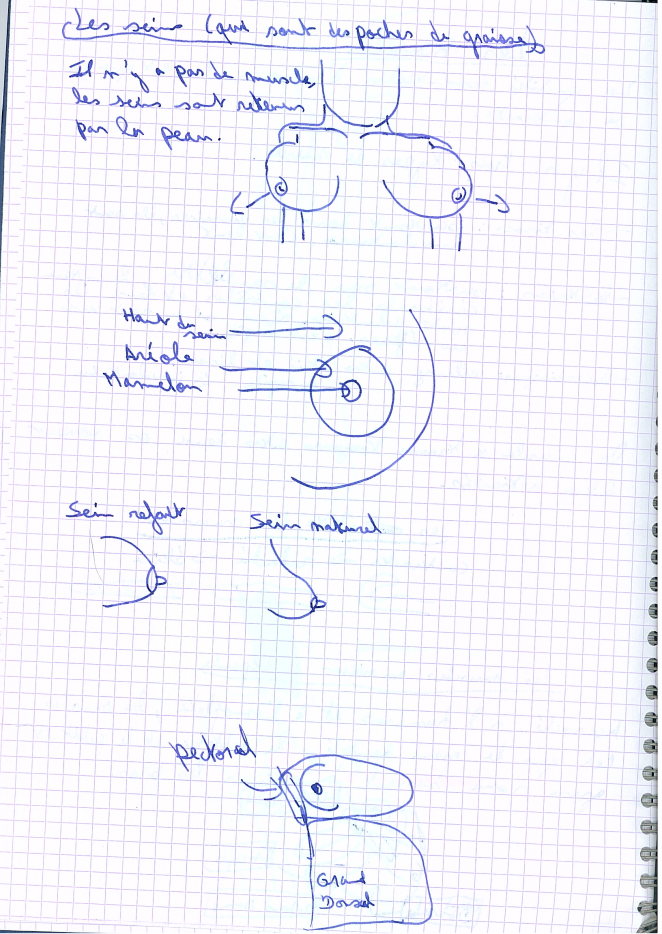 Les seins (qui sont des poches de graisse)
Il n'y a pas de muscle,
les seins sont retenus
par la peau.
Haut du
sein
Aréole
Mamelon
Sein refait
Sein naturel
pectoral
Grand
Dorsal